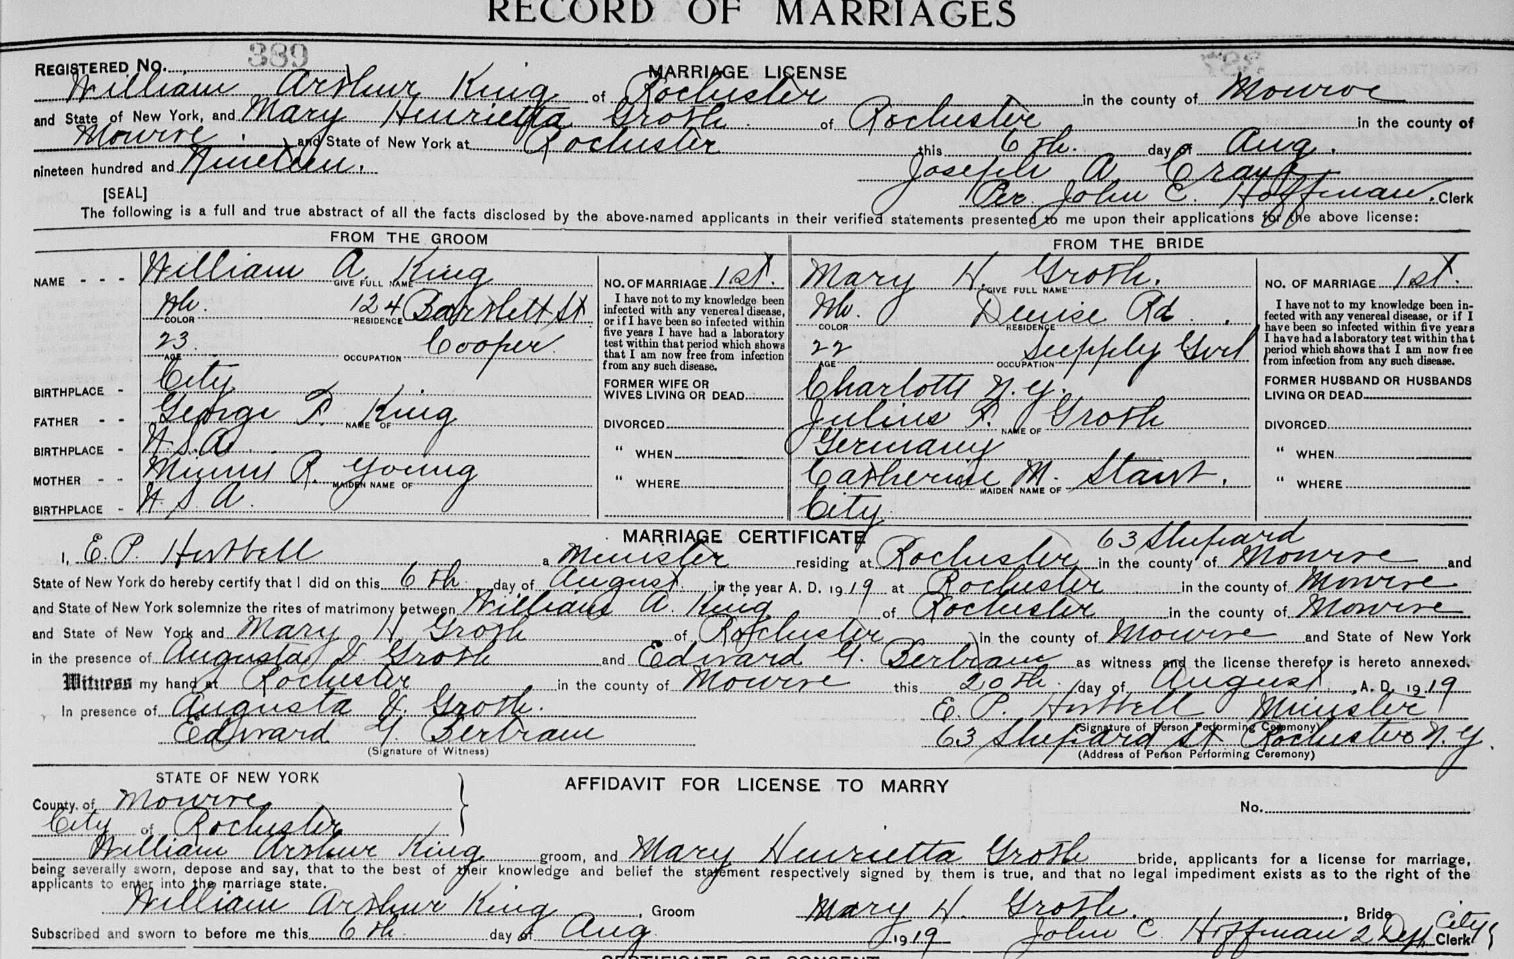 RECORD OF MARRIAGES
REGISTERED No. 389
MARRIAGE LICENSE
William Arthur King of Rochester in the county of Monroe
and State of New York, and Mary Henrietta Groth of Rochester in the county of
Monroe and State of New York at Rochester this 6th. day of Aug.
nineteen hundred and Nineteen. Joseph A
[SEAL] Per John C. Hoffman. Clerk
The following is a full and true abstract of all the facts disclosed by the above-named applicants in their verified statements presented to me upon their applications for the above license:
FROM THE GROOM
NAME - - - William A. King
GIVE FULL NAME
Wh. 124 Bartlett St
COLOR RESIDENCE
23 Cooper
AGE OCCUPATION
BIRTHPLACE - City
FATHER - - George F. King
NAME OF
BIRTHPLACE - U.S.A.
MOTHER - - Minnie R. Young
MAIDEN NAME OF
BIRTHPLACE - U.S.A.
NO. OF MARRIAGE 1st.
I have not to my knowledge been
infected with any venereal disease,
or if I have been so infected within
five years I have had a laboratory
test within that period which shows
that I am now free from infection
from any such disease.
FORMER WIFE OR
WIVES LIVING OR DEAD
DIVORCED
" WHEN
" WHERE
FROM THE BRIDE
Mary H. Groth.
GIVE FULL NAME
Wh. Denise Rd.
COLOR RESIDENCE
22 Supply Govt
AGE OCCUPATION
Charlotte N.Y.
Julius F. Groth
NAME OF
Germany
Catherine M.
MAIDEN NAME OF
City
NO. OF MARRIAGE 1st.
I have not to my knowledge been in-
fected with any venereal disease, or if I
have been so infected within five years
I have had a laboratory test within that
period which shows that I am now free
from infection from any such disease.
FORMER HUSBAND OR HUSBANDS
LIVING OR DEAD
DIVORCED
" WHEN
" WHERE
MARRIAGE CERTIFICATE
63 Shepard
I, E. P. a Minister residing at Rochester in the county of Monroe and
State of New York do hereby certify that I did on this 6th day of August in the year A. D. 1919 at Rochester in the county of Monroe
and State of New York solemnize the rites of matrimony between William A. King of Rochester in the county of Monroe
and State of New York and Mary H Groth of Rochester in the county of Monroe and State of New York
in the presence of Augusta J Groth and Edward G. Bertram as witness and the license therefor is hereto annexed.
Witness my hand at Rochester in the county of Monroe this 20th day of August A. D. 1919
In presence of Augusta J. Groth. E. P. Minister
(Signature of Person Performing Ceremony)
Edward G. Bertram 63 Shepard St Rochester N.Y.
(Signature of Witness) (Address of Person Performing Ceremony)
STATE OF NEW YORK
AFFIDAVIT FOR LICENSE TO MARRY
County of Monroe No.
City of Rochester
William Arthur King groom, and Mary Henrietta Groth bride, applicants for a license for marriage,
being severally sworn, depose and say, that to the best of their knowledge and belief the statement respectively signed by them is true, and that no legal impediment exists as to the right of the
applicants to enter into the marriage state.
William Arthur King, Groom Mary H. Groth., Bride
Subscribed and sworn to before me this 6th day of Aug 1919 John C. Hoffman 2 Dep City Clerk
CERTIFICATE OF CONSENT